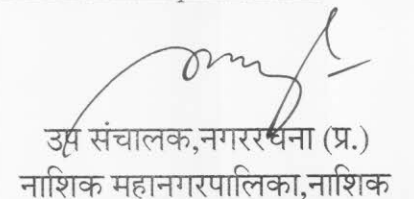 उप संचालक,नगररचना (प्र.)
नाशिक महानगरपालिका,नाशिक